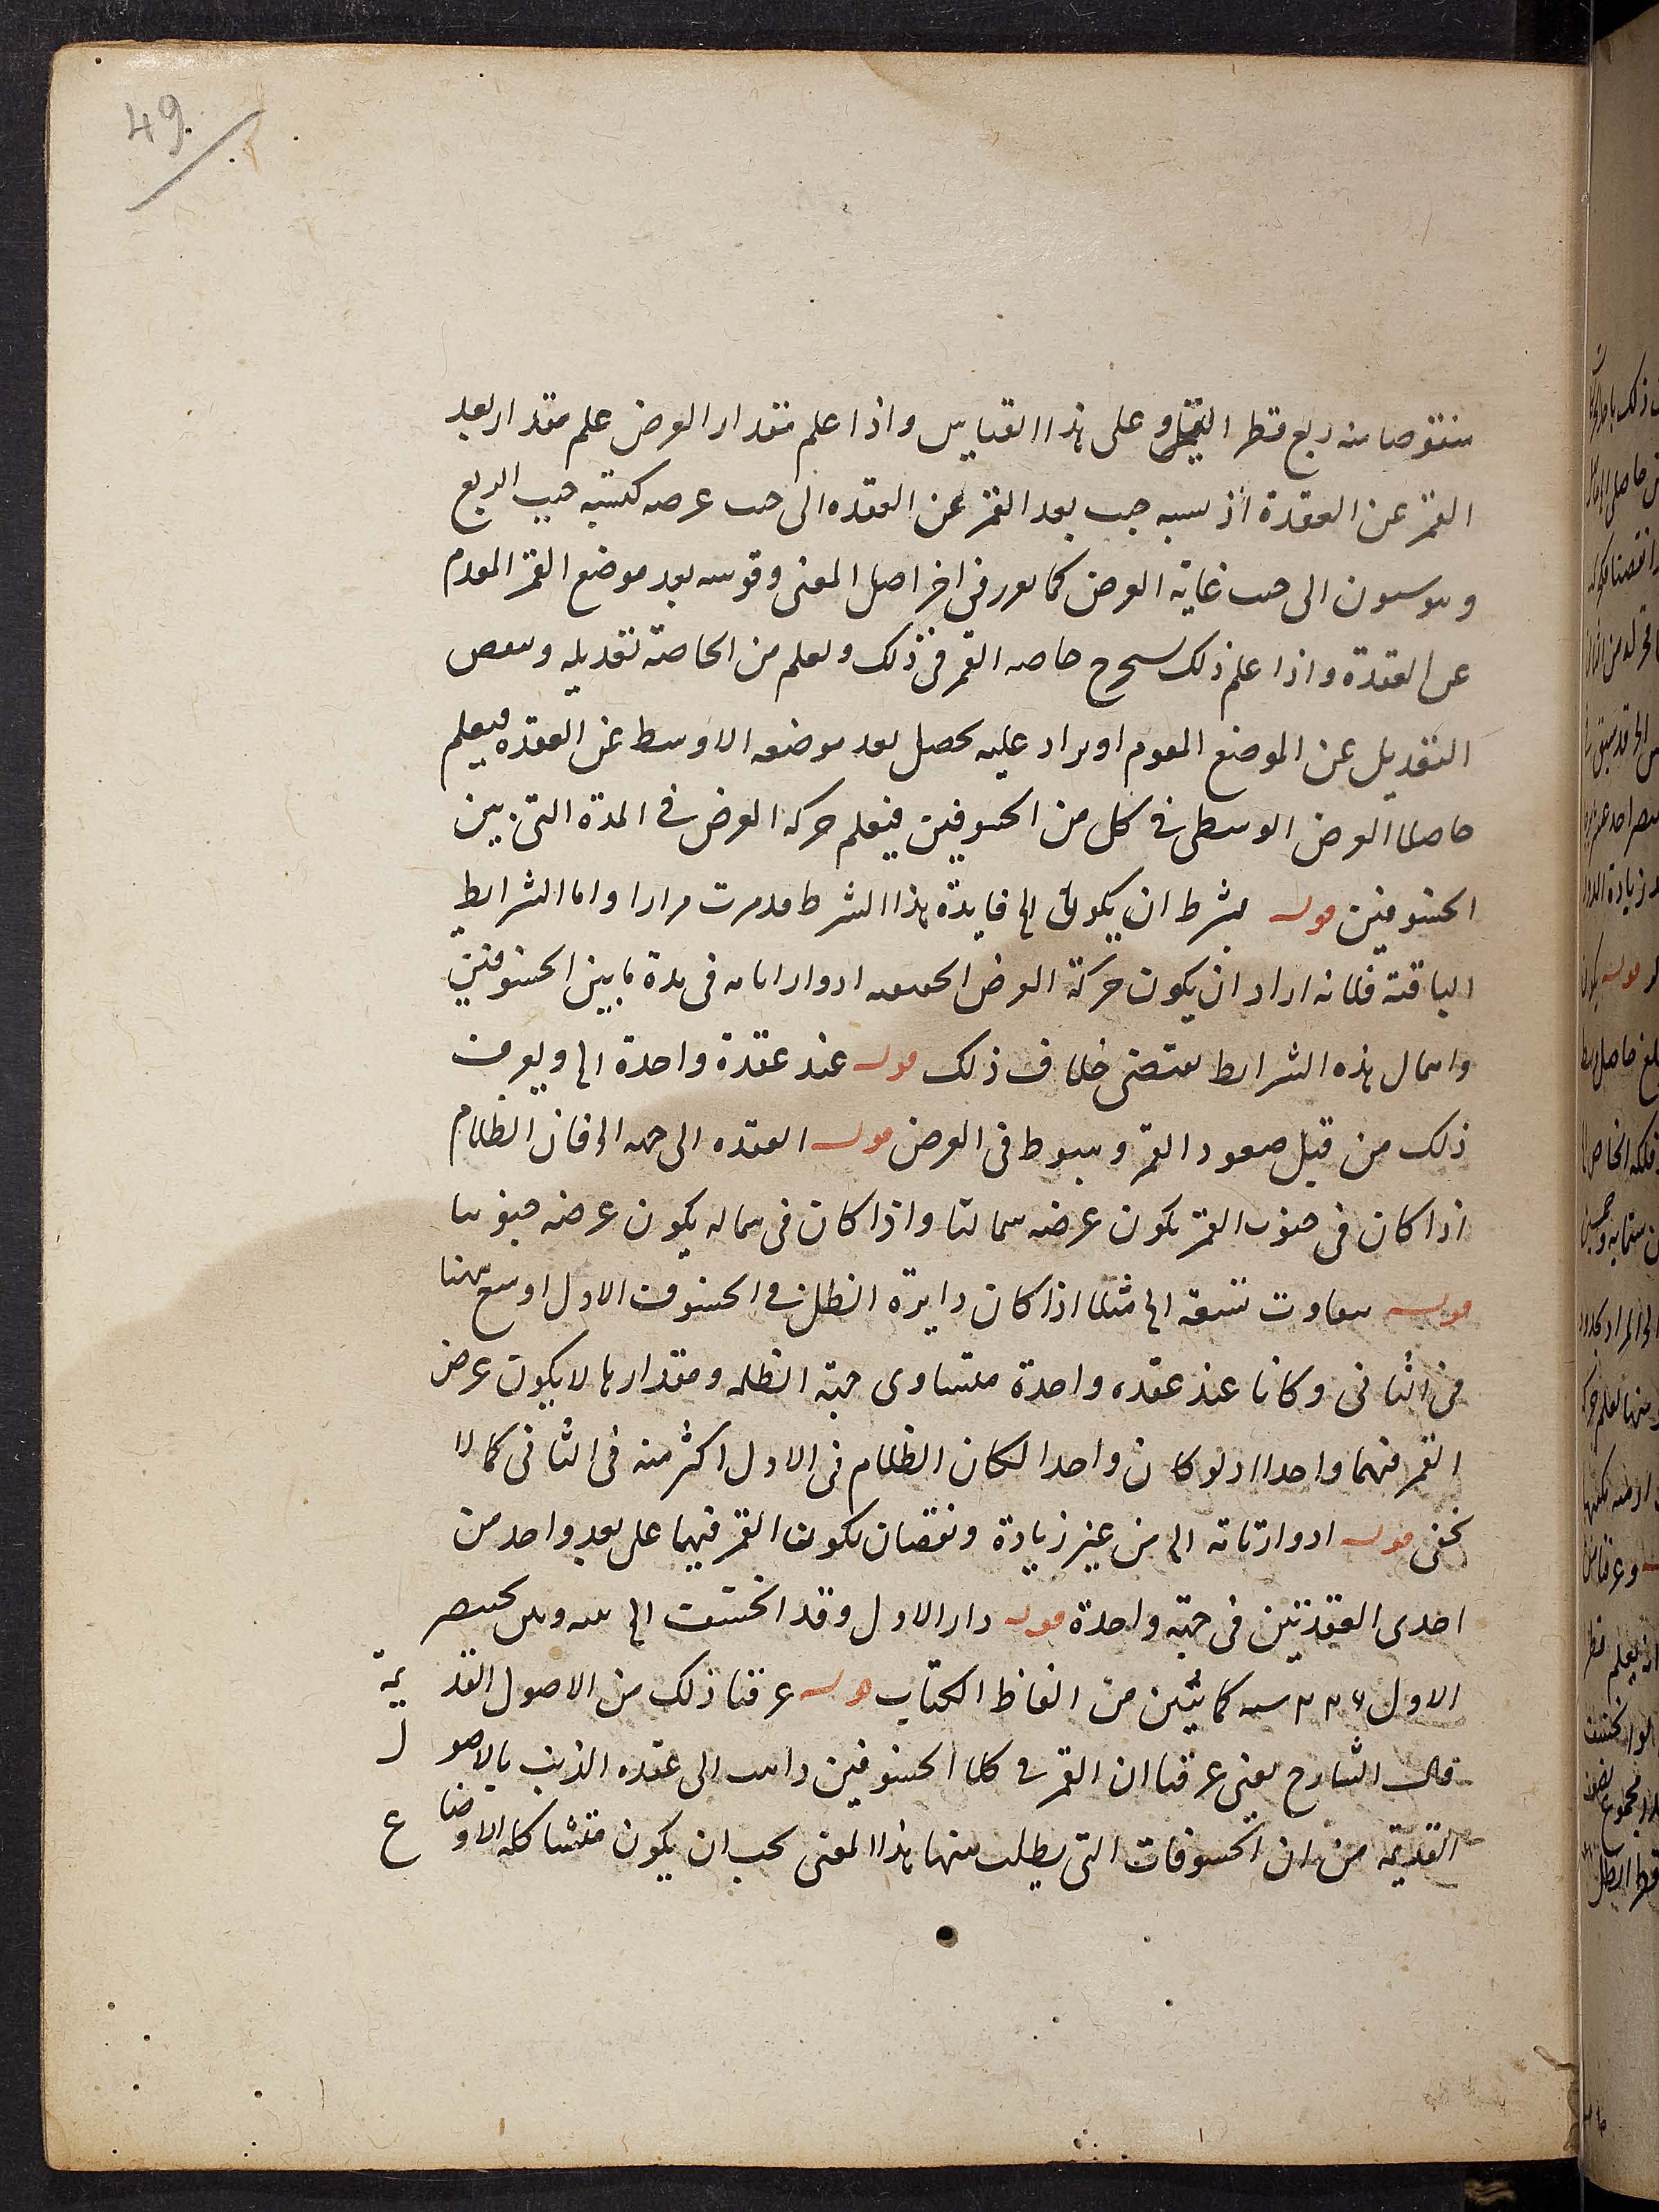 49
منقوصا منه ربع قطر القمر و على هذا القياس واذا علم مقدار العرض علم مقدار بعد
القمر عن العقدة اذ نسبة جيب بعد القمر عن العقده الى جيب عرضه كنسبة جيب الربع
وهو ستون الى جيب غاية العرض كما تقرر فى اخر اصل المغنى وقوسه بعد موضع القمر المقوم
عن العقدة واذا علم ذلك يستخرج خاصه القمر فى ذلك ويعلم من الخاصة تعديله وينقص
التعديل عن الموضع المقوم او يزاد عليه يحصل بعد موضعه الاوسط عن العقده فيعلم
حاصلا العرض الوسطى فى كل من الخسوفين فيعلم حركة العرض فى المدة التى بين
الخسوفين قوله بشرط ان يكون الخ فايدة هذا الشرط قد مرت مرارا واما الشرايط
الباقية فلانه اراد ان يكون حركة العرض الحقيقية ادوارا تامه فى مدة ما بين الخسوفين
واهمال هذه الشرايط يقتضى خلاف ذلك قوله عند عقدة واحدة الخ ويعرف
ذلك من قبل صعود القمر وهبوط فى العرض قوله العقده الى جهة الخ فان الظلام
اذا كان فى جنوب القمر يكون عرضه شماليا واذا كان فى شماله يكون عرضه جنوبيا
قوله تفاوت سعة الخ مثلا اذا كان دايرة الظل فى الخسوف الاول اوسع منها
فى الثانى وكانا عند عقده واحدة متساوى جهة الظلمه ومقدارها لا يكون عرض
القمر فيهما واحدا اذ لو كان واحدا لكان الظلام فى الاول اكثر منه فى الثانى كما لا
يخفى قوله ادوار تامة الخ من غير زيادة ونقصان لكون القمر فيهما على بعد واحد من
احدى العقدتين فى جهة واحدة قوله دار الاول وقد انخسف الخ
الاول كما تبين من الفاظ الكتاب قوله عرفنا ذلك من الاصول القديمة
قال الشارح يعنى عرفنا ان القمر فى كلا الخسوفين ذاهب الى عقده الذنب بالاصول
القديمه من ان الخسوفات التى يطلب منها هذا المعنى يجب ان يكون متشاكله الاوضاع